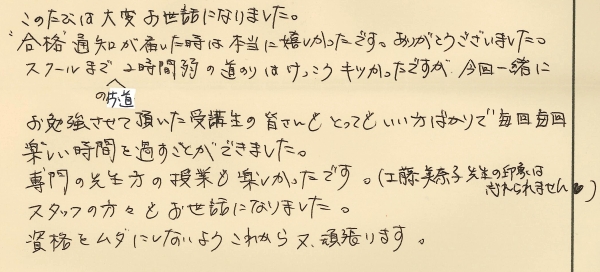 このたびは大変お世話になりました。
"合格"通知が届いた時は本当に嬉しかったです。ありがとうございました。
スクールまで2時間弱の道のりはけっこうキツかったですが、今回一緒に
の歩道
お勉強させて頂いた受講生の皆さんもとってもいい方ばかりで毎回毎回
楽しい時間を過すことができました。
専門の先生方の授業も楽しかったです。(工藤美奈子先生の印象は
忘れられません♥)
スタッフの方々もお世話になりました。
資格をムダにしないようこれから又、頑張ります。